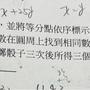 x-y
，並將等分點依序標示
數在圓周上找到相同數
擲骰子三次後所得三個